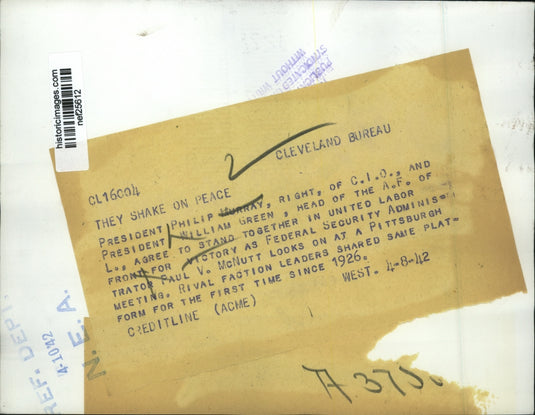 historicimages.com
nef25612
CL16004
CLEVELAND BUREAU
THEY SHAKE ON PEACE
PRESIDENT PHILIP MURRAY, RIGHT, OF C.I.O., AND
PRESIDENT WILLIAM GREEN, HEAD OF THE A.F. OF
L., AGREE TO STAND TOGETHER IN UNITED LABOR
FRONT FOR VICTORY AS FEDERAL SECURITY ADMINIS-
TRATOR PAUL V. MCNUTT LOOKS ON AT A PITTSBURGH
MEETING. RIVAL FACTION LEADERS SHARED SAME PLAT-
FORM FOR THE FIRST TIME SINCE 1926.
CREDITLINE (ACME)
WEST. 4-8-42
REF. DEPT
4-10-42
N. E. A.